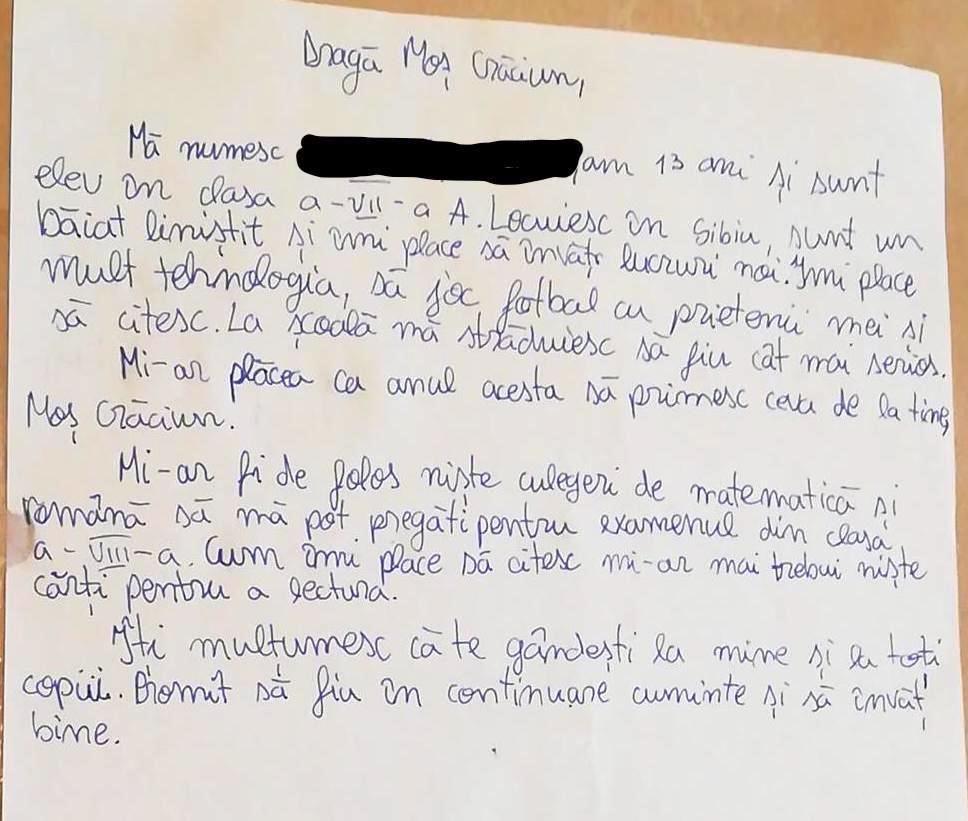 Dragă Moș Crăciun,
Mă numesc , am 13 ani și sunt
elev în clasa a-VII-a A. Locuiesc în Sibiu, sunt un
băiat liniștit și îmi place să învăț lucruri noi. Îmi place
mult tehnologia, să joc fotbal cu prietenii mei și
să citesc. La școală mă străduiesc să fiu cât mai serios.
Mi-ar plăcea ca anul acesta să primesc ceva de la tine,
Moș Crăciun.
Mi-ar fi de folos niște culegeri de matematică și
română să mă pot pregăti pentru examenul din clasa
a-VIII-a. Cum îmi place să citesc mi-ar mai trebui niște
cărți pentru a lectura.
Îți mulțumesc că te gândești la mine și la toți
copiii. Promit să fiu în continuare cuminte și să învăț
bine.